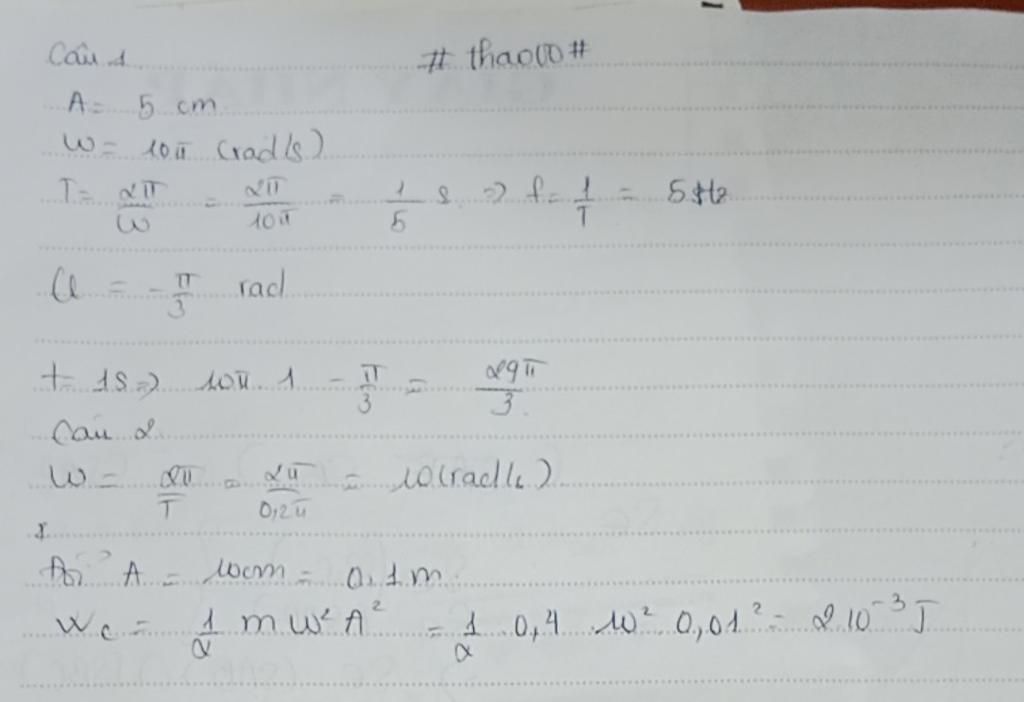 Câu 1 # thao00 #
A = 5 cm
W = 10π (rad/s)
T = 2π/W = 2π/10π = 1/5 s => f = 1/T = 5 Hz
φ = -π/3 rad
t = 1s => 10π. 1 - π/3 = 29π/3.
Câu 2
W = 2π/T = 2π/0,2π = 10(rad/s)
A = 10cm = 0,1m
Wc = 1/2 m W² A² = 1/2 0,4 10² 0,01² = 2 10⁻³ J